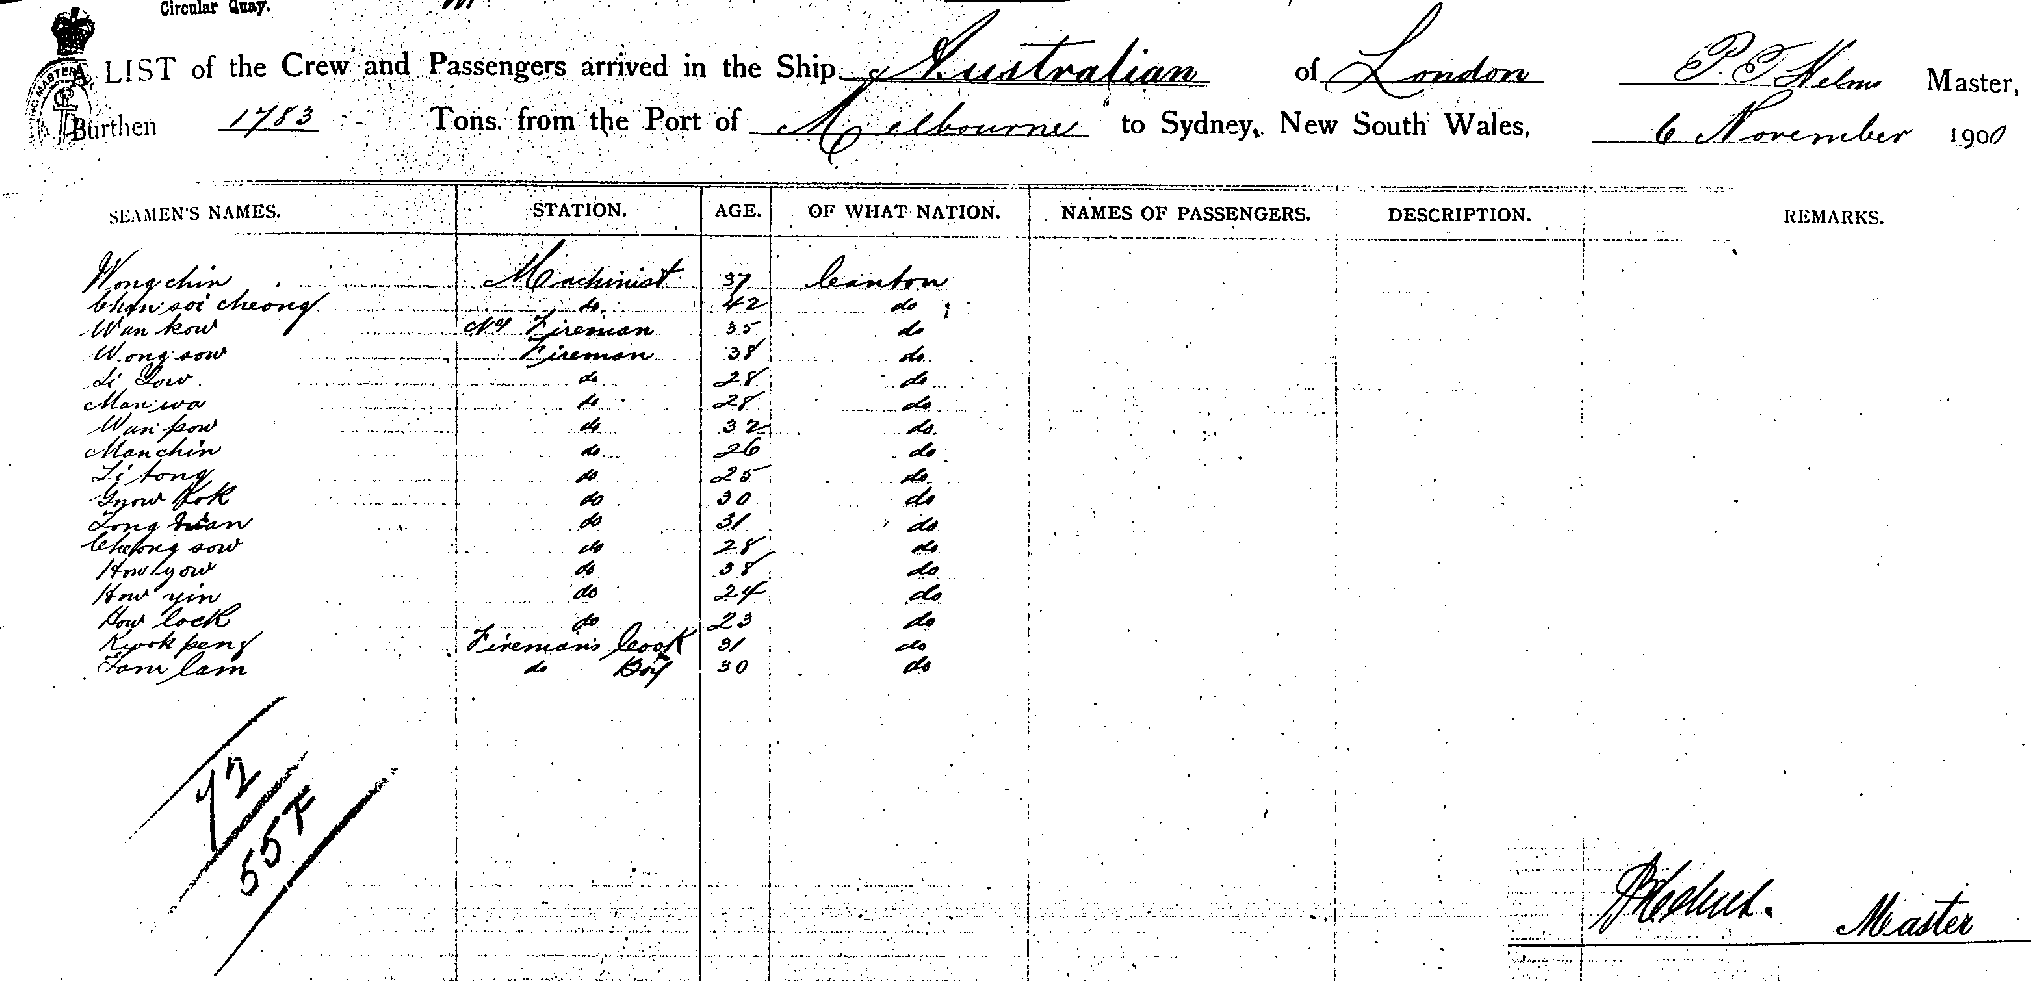 Circular Quay.
LIST of the Crew and Passengers arrived in the Ship Australian of London P. T. Helms Master,
Burthen 1783 Tons. from the Port of Melbourne to Sydney, New South Wales, 6 November 1900
SEAMEN'S NAMES. STATION. AGE. OF WHAT NATION. NAMES OF PASSENGERS. DESCRIPTION. REMARKS.
Wong chin Machinist 37 Canton
Chan soi cheong do 42 do
Wan kow No 1 Fireman 35 do
Wong sow Fireman 38 do
Li do 28 do
Man wa do 28 do
Wan pow do 32 do
Man chin do 26 do
Li tong do 25 do
do 30 do
Tong do 31 do
Cheong sow do 28 do
How yow do 38 do
How yin do 24 do
How lock do 23 do
Kwok peng Fireman's Cook 31 do
Tam lam do Boy 30 do
72
55 F
Master